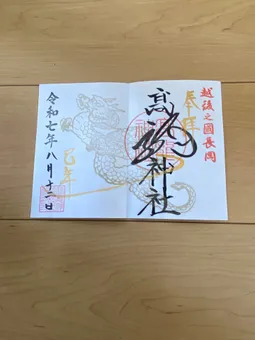 越後之國長岡
奉拝
髙龍神社
巳年
令和七年八月十二日